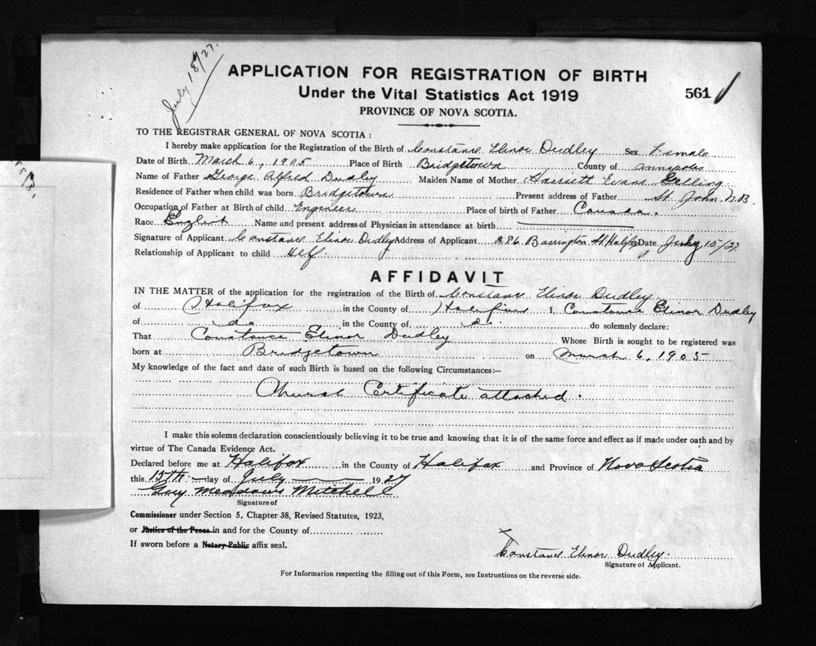 July 18/27.
APPLICATION FOR REGISTRATION OF BIRTH
Under the Vital Statistics Act 1919
561
PROVINCE OF NOVA SCOTIA.
TO THE REGISTRAR GENERAL OF NOVA SCOTIA :
I hereby make application for the Registration of the Birth of Constance Elinor Dudley Sex Female
Date of Birth March 6, 1905 Place of Birth Bridgetown County of Annapolis
Name of Father George Alfred Dudley Maiden Name of Mother Harriett Evans
Residence of Father when child was born Bridgetown Present address of Father St. John N.B.
Occupation of Father at Birth of child Engineer Place of birth of Father Canada.
Race English Name and present address of Physician in attendance at birth
Signature of Applicant Constance Elinor Dudley Address of Applicant Barrington St. Halifax Date July 15/27
Relationship of Applicant to child self
AFFIDAVIT
IN THE MATTER of the application for the registration of the Birth of Constance Elinor Dudley
of Halifax in the County of Halifax I, Constance Elinor Dudley
of do in the County of do. do solemnly declare:
That Constance Elinor Dudley Whose Birth is sought to be registered was
born at Bridgetown on March 6, 1905
My knowledge of the fact and date of such Birth is based on the following Circumstances:—
Church Certificate attached.
I make this solemn declaration conscientiously believing it to be true and knowing that it is of the same force and effect as if made under oath and by
virtue of The Canada Evidence Act.
Declared before me at Halifax in the County of Halifax and Province of Nova Scotia
this 15th day of July 1927
Mitchell
Signature of
Commissioner under Section 5, Chapter 38, Revised Statutes, 1923,
or Justice of the Peace in and for the County of
If sworn before a Notary Public affix seal.
Constance Elinor Dudley.
Signature of Applicant.
For Information respecting the filling out of this Form, see Instructions on the reverse side.